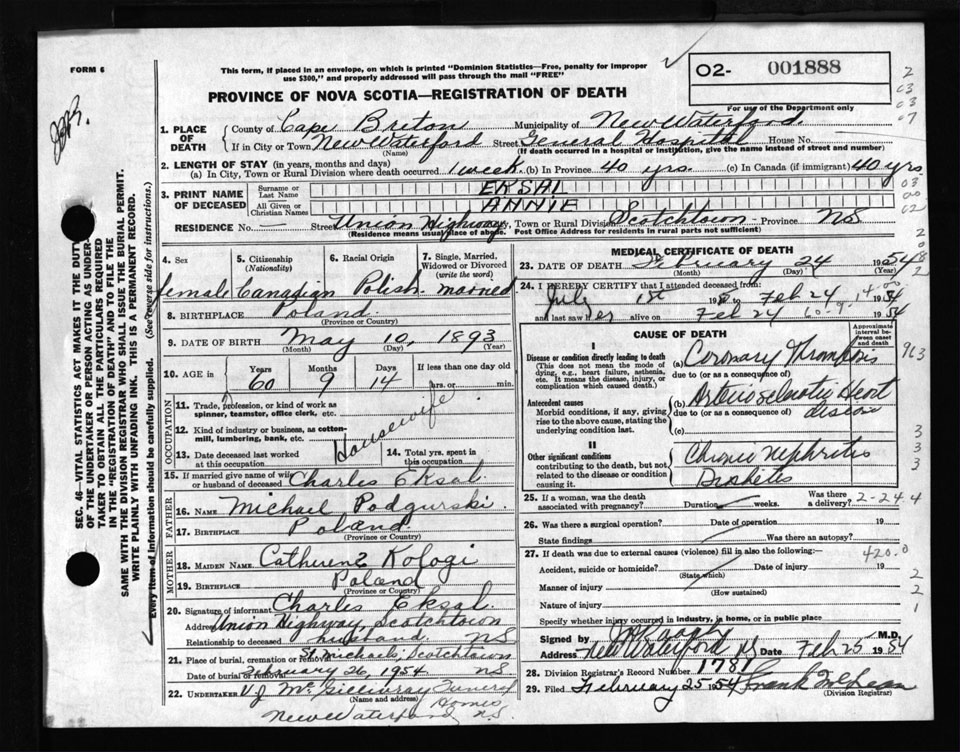 FORM 6
This form, if placed in an envelope, on which is printed "Dominion Statistics—Free, penalty for improper
use $300," and properly addressed will pass through the mail "FREE"
02- 001888
PROVINCE OF NOVA SCOTIA—REGISTRATION OF DEATH
For use of the Department only
1. PLACE OF DEATH
County of Cape Breton Municipality of New Waterford
If in City or Town New Waterford Street General Hospital House No.
(Name) (If death occurred in a hospital or institution, give the name instead of street and number)
2. LENGTH OF STAY (in years, months and days)
(a) In City, Town or Rural Division where death occurred 1 week (b) In Province 40 yrs. (c) In Canada (if immigrant) 40 yrs
3. PRINT NAME OF DECEASED
Surname or Last Name EKSAL
All Given or Christian Names ANNIE
RESIDENCE No. — Street Union Highway City, Town or Rural Division Scotchtown Province NS
(Residence means usual place of abode. Post Office Address for residents in rural parts not sufficient)
4. Sex
female
5. Citizenship
(Nationality)
Canadian
6. Racial Origin
Polish
7. Single, Married,
Widowed or Divorced
(write the word)
married
8. BIRTHPLACE Poland
(Province or Country)
9. DATE OF BIRTH May 10, 1893
(Month) (Day) (Year)
10. AGE in Years Months Days If less than one day
60 9 14 hrs. or min.
OCCUPATION
11. Trade, profession, or kind of work as
spinner, teamster, office clerk, etc.
Housewife
12. Kind of industry or business, as cotton-
mill, lumbering, bank, etc.
13. Date deceased last worked
at this occupation
14. Total yrs. spent in
this occupation
15. If married give name of wife
or husband of deceased Charles Eksal
FATHER
16. NAME Michael Podgurski
17. BIRTHPLACE Poland
(Province or Country)
MOTHER
18. MAIDEN NAME Catherine Kologi
19. BIRTHPLACE Poland
(Province or Country)
20. Signature of informant Charles Eksal
Address Union Highway, Scotchtown
Relationship to deceased husband NS
21. Place of burial, cremation or removal St. Michaels, Scotchtown
Date of burial or removal February 26, 1954 NS
22. UNDERTAKER V.J. McGillivray Funeral
(Name and address) Homes
New Waterford N.S.
MEDICAL CERTIFICATE OF DEATH
23. DATE OF DEATH February 24 1954
(Month) (Day) (Year)
24. I HEREBY CERTIFY that I attended deceased from:
July 1st 19 to Feb 24 1954
and last saw her alive on Feb 24 1954
60-9-14-00
CAUSE OF DEATH
Approximate
interval be-
tween onset
and death
I
Disease or condition directly leading to death
(This does not mean the mode of
dying, e.g., heart failure, asthenia,
etc. It means the disease, injury, or
complication which caused death.)
(a) Coronary Thrombosis
due to (or as a consequence of)
Antecedent causes
Morbid conditions, if any, giving
rise to the above cause, stating the
underlying condition last.
(b) Arteriosclerotic Heart
disease
due to (or as a consequence of)
(c)
II
Other significant conditions
contributing to the death, but not
related to the disease or condition
causing it.
Chronic Nephritis
Diabetes
25. If a woman, was the death
associated with pregnancy? Duration weeks. Was there
a delivery?
2-24 4
26. Was there a surgical operation? Date of operation 19
State findings Was there an autopsy?
27. If death was due to external causes (violence) fill in also the following:—
420.0
Accident, suicide or homicide? Date of injury 19
(State which)
Manner of injury
(How sustained)
Nature of injury
Specify whether injury occurred in industry, in home, or in public place
Signed by M.D.
Address New Waterford NS Date Feb 25 1954
28. Division Registrar's Record Number 1781
29. Filed February 25 1954
(Division Registrar)
SEC. 46—VITAL STATISTICS ACT MAKES IT THE DUTY
OF THE UNDERTAKER OR PERSON ACTING AS UNDER-
TAKER TO OBTAIN ALL THE PARTICULARS REQUIRED
IN THE "REGISTRATION OF DEATH" AND TO FILE THE
SAME WITH THE DIVISION REGISTRAR WHO SHALL ISSUE THE BURIAL PERMIT.
WRITE PLAINLY WITH UNFADING INK. THIS IS A PERMANENT RECORD.
Every item of information should be carefully supplied. (See reverse side for instructions.)